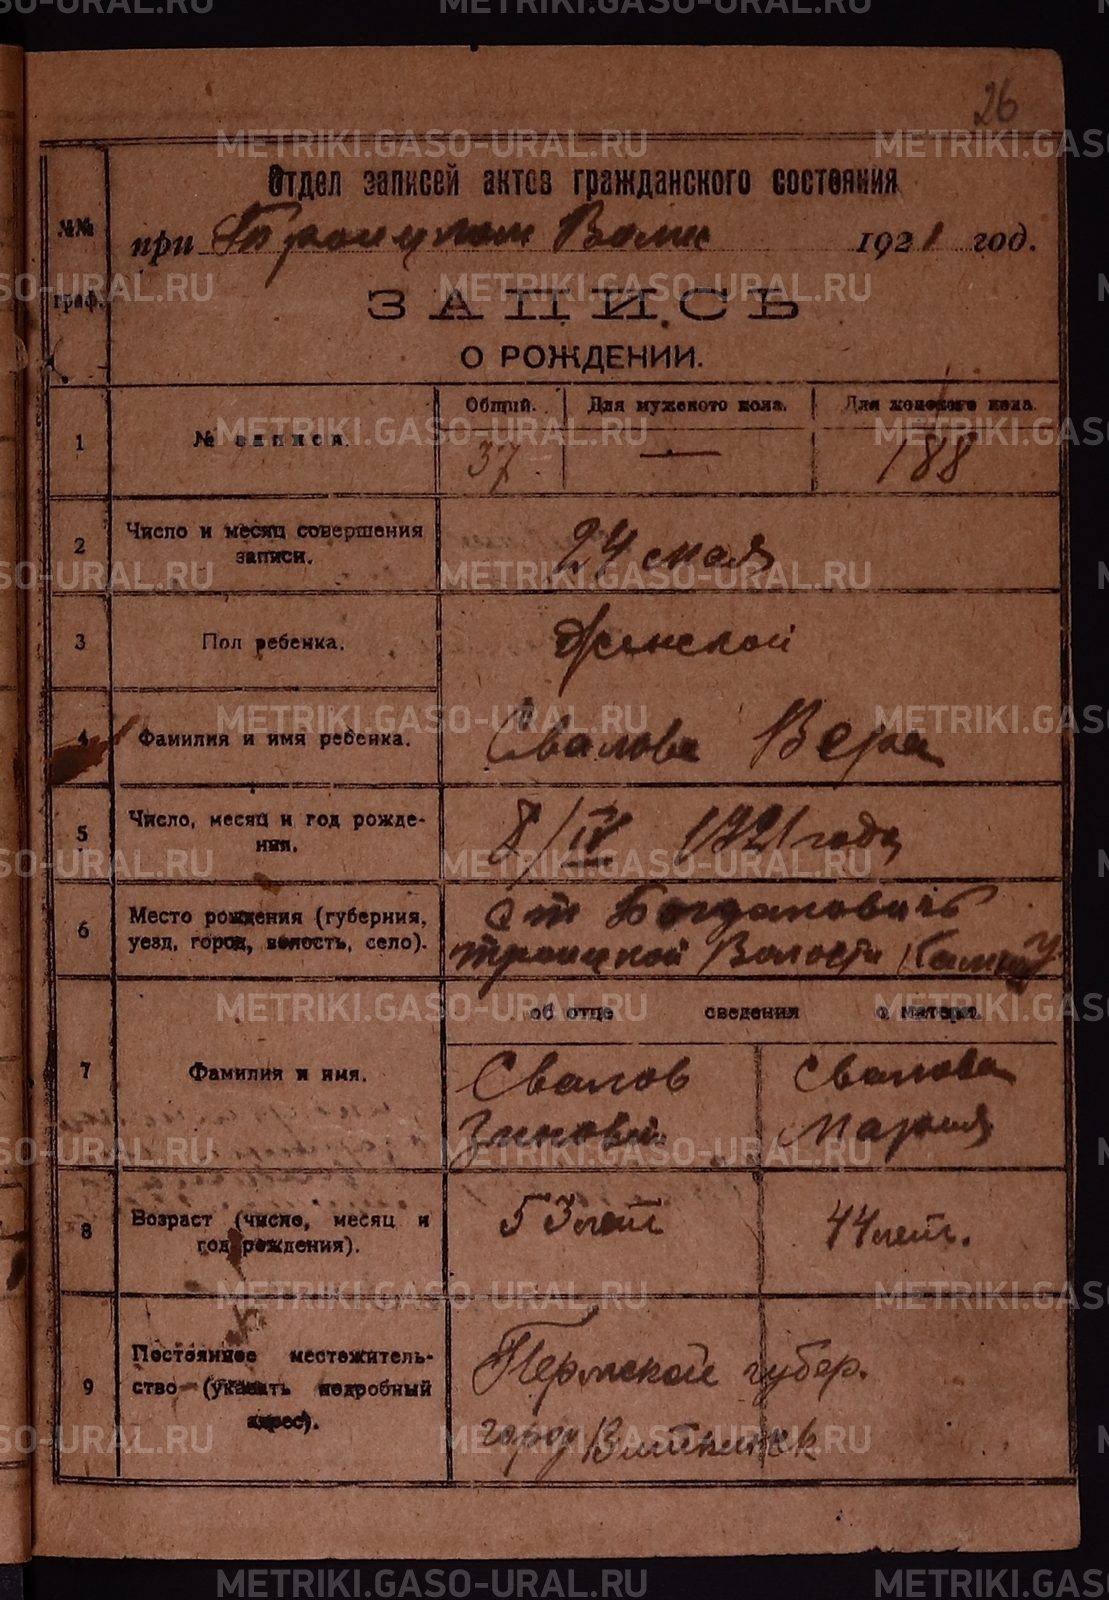 26
Отдел записей актов гражданского состояния
№№ граф.
при Троицком Волис 1921 год.
ЗАПИСЬ
О РОЖДЕНИИ.
1
№ записи.
Общий. Для мужского пола. Для женского пола.
37 — 188
2
Число и месяц совершения
записи.
24 мая
3
Пол ребенка.
Женской
4
Фамилия и имя ребенка.
Свалова Вера
5
Число, месяц и год рожде-
ния.
8/IV 1921 года
6
Место рождения (губерния,
уезд, город, волость, село).
Ст Богданович
троицкой Волости
об отце сведения о матери.
7
Фамилия и имя.
Свалов Свалова
Зиновий Мария
8
Возраст (число, месяц и
год рождения).
53 лет 44 лет.
9
Постоянное местожитель-
ство (указать подробный
адрес).
Пермской губер.
город
METRIKI.GASO-URAL.RU